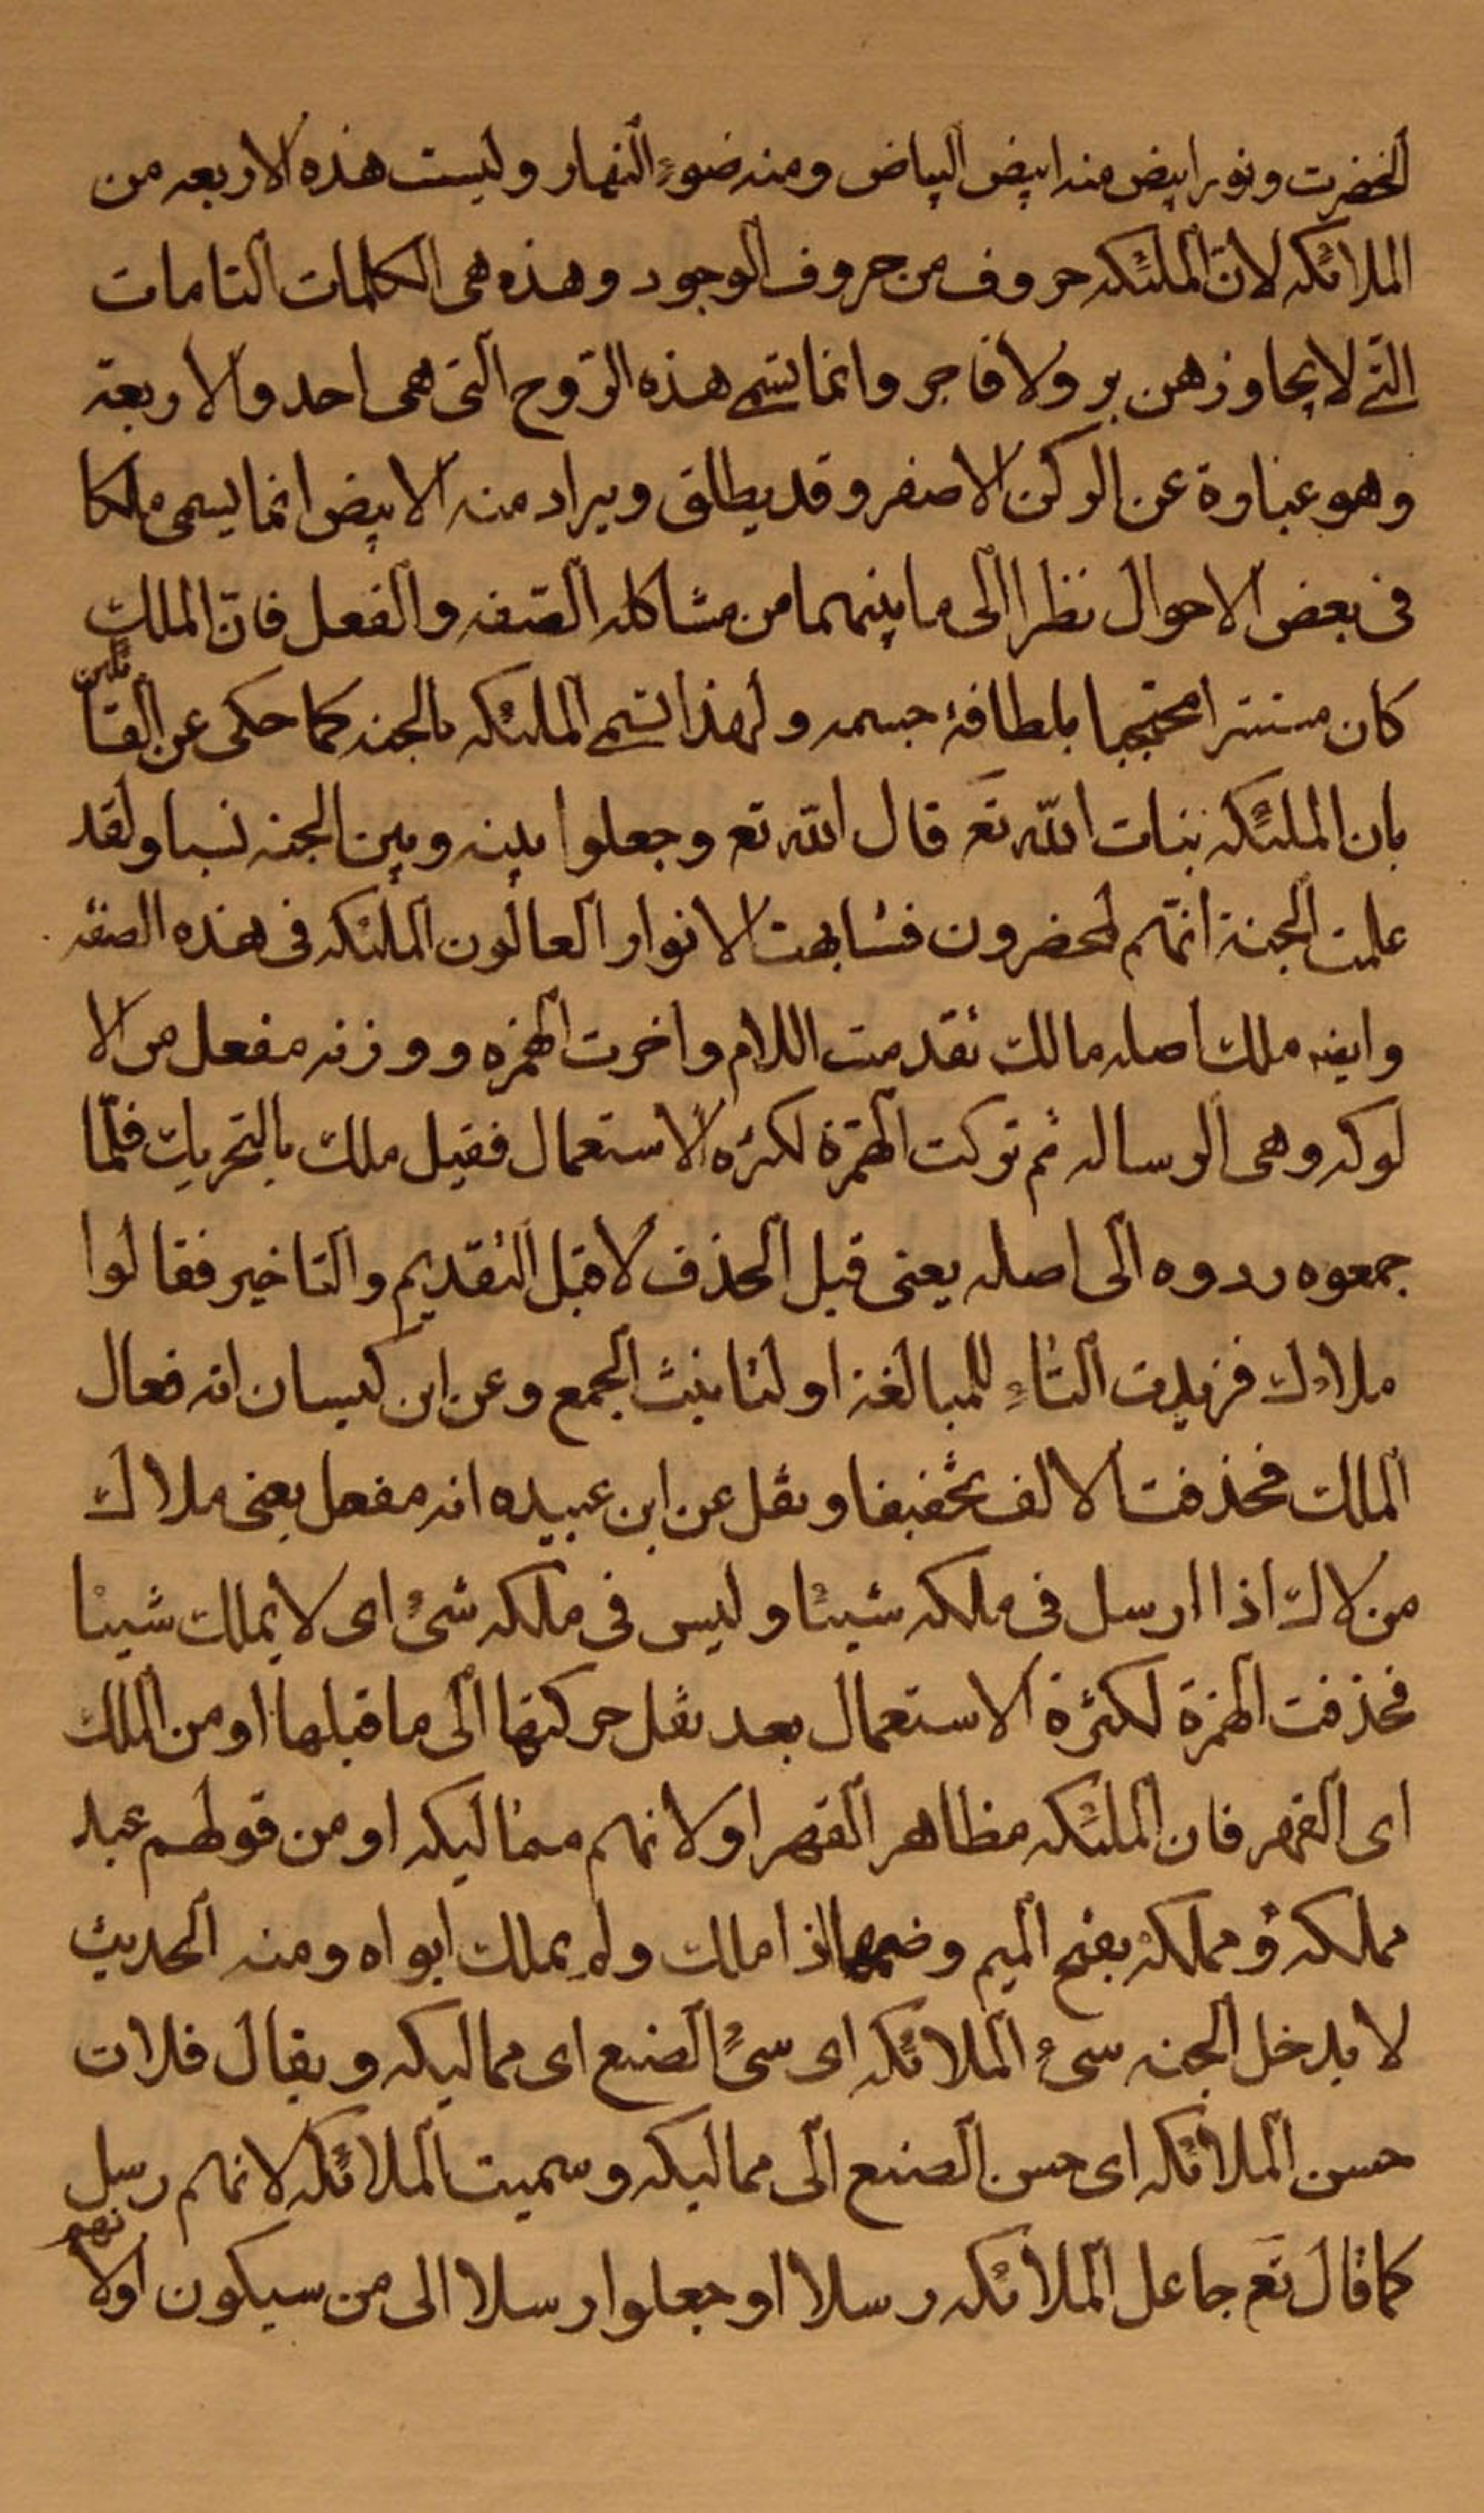 الخضرت ونور ابيض منه ابيض البياض ومنه ضوء النهار وليست هذه الاربعه من
الملائكه لانّ الملئكه حروف من حروف الوجود وهذه هى الكلمات التامات
التّى لا يجاوزهن بر ولا فاجر وانما تسمى هذه الرّوح التى هى احد والاربعة
وهو عباوة عن الركن الاصفر وقد يطلق ويراد منه الابيض انما يسمى ملكا
فى بعض الاحوال نظرا الى ما بينهما من مشاكله الصّفه والفعل فانّ الملك
كان مستترا محتجبا بلطافة جسمه ولهذا تسمى الملئكه بالجنه كما حكى عن القائلين
بان الملئكه بنات الله تع قال الله تع وجعلوا بينه وبين الجنه نسبا ولقد
علمت الجنة انّهم لمحضرون فشابهت الانوار العالون الملئكه فى هذه الصفه
وايضه ملك اصله مالك تقدمت اللام واخرت الهمزه ووزنه مفعل من الا
لوكه وهى الرساله ثم تركت الهمزة لكثره الاستعمال فقيل ملك بالتحريك فلمّا
جمعوه ردوه الى اصله يعنى قبل الحذف لا قبل التقديم والتاخير فقالوا
ملاءك فزيدت التاء للمبالغه او لتانيث الجمع وعن ابن كيسان انه فعال
الملك فحذفت الالف تخفيفا ونقل عن ابن عبيده انه مفعل يعنى ملاك
من لاك اذا ارسل فى ملكه شيئا وليس فى ملكه شئ اى لا يملك شيئا
فحذفت الهمزة لكثرة الاستعمال بعد نقل حركتها الى ما قبلها او من الملك
اى القهر فان الملئكه مظاهر القهر او لانهم مماليكه او من قولهم عبد
مملكه ومملكة بفتح الميم وضمها اذا ملك ولم يملك ابواه ومنه الحديث
لا يدخل الجنه سىء الملائكه اى سىء الصنع اى مماليكه ويقال فلان
حسن الملائكه اى حسن الصنع الى مماليكه وسميت الملائكه لانهم رسل
كما قال تع جاعل الملائكه رسلا او جعلوا رسلا الى من سيكون اولانهم